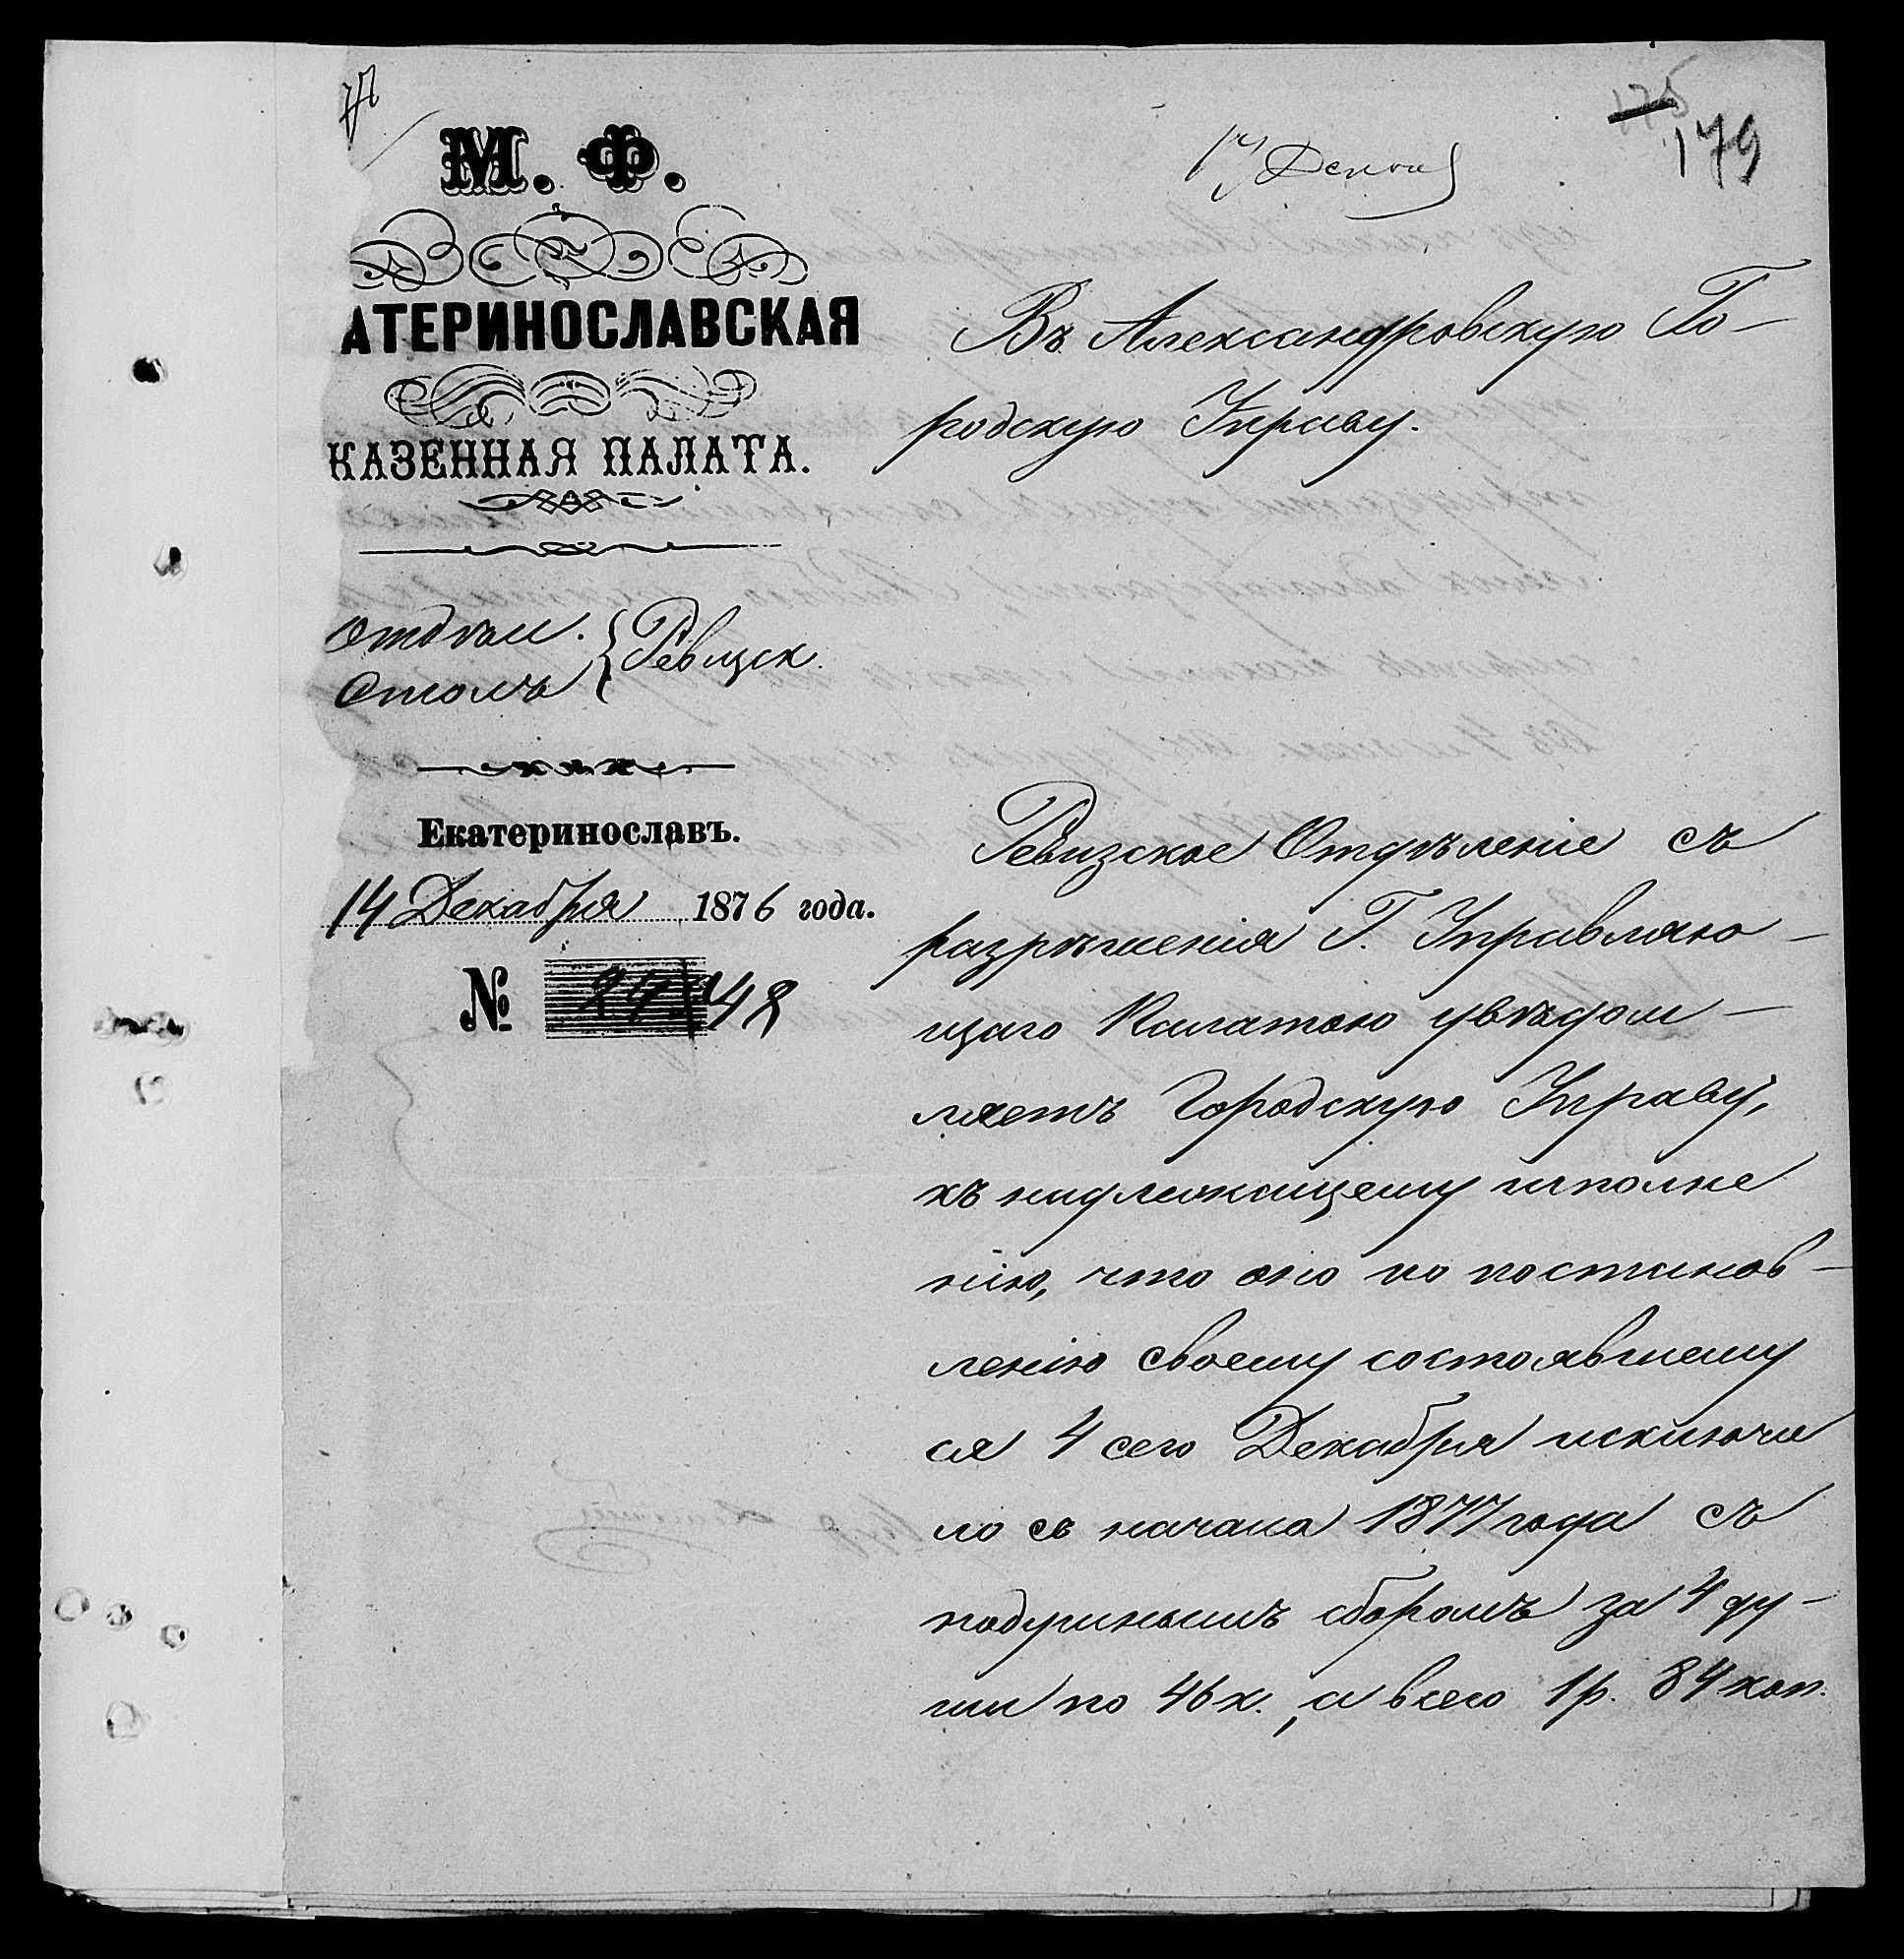 175
179
17 Декаб
М. Ф.
АТЕРИНОСЛАВСКАЯ
КАЗЕННАЯ ПАЛАТА.
Отдѣл.
Столъ
Ревизск.
Екатеринославъ.
14 Декабря 1876 года.
№
Въ Александровскую Го-
родскую Управу.
Ревизское Отдѣленіе съ
разрѣшенія Г. Управляю-
щаго Палатою увѣдом-
ляетъ Городскую Управу,
къ надлежащему исполне
нію, что оно по постанов-
ленію своему состоявшему
ся 4 сего Декабря исключи
ло съ начала 1877 года съ
подушнымъ сборомъ за 4 ду-
ши по 46 к., а всего 1 р. 84 коп.